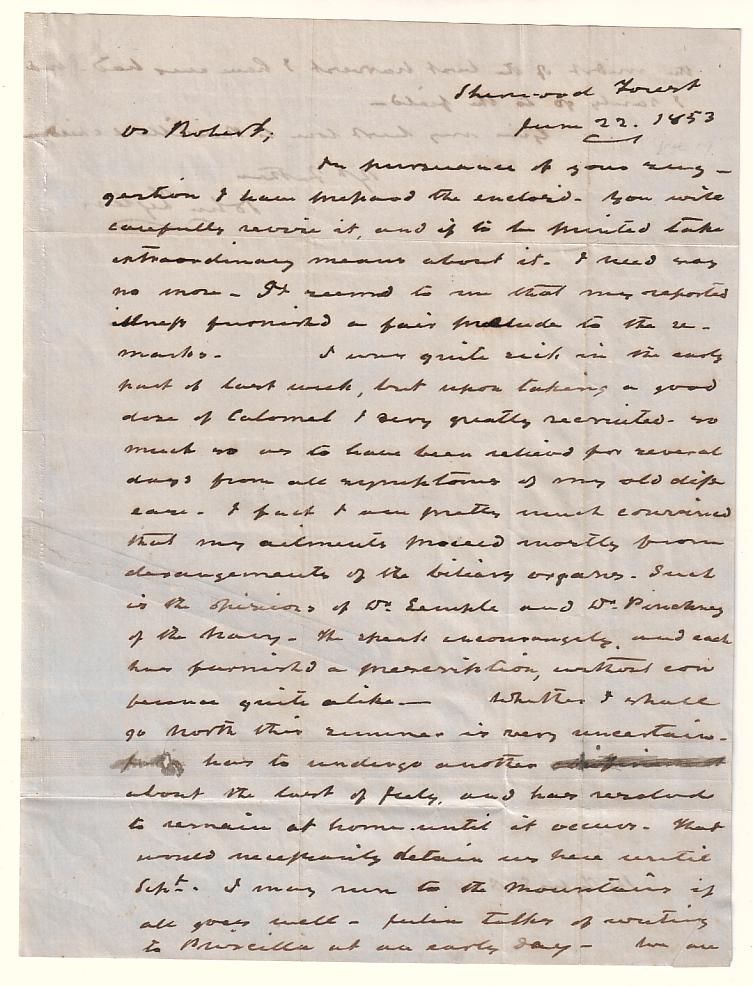 Sherwood Forest
June 22. 1853
Dr Robert;
In pursuance of your sug-
gestion I have prepared the enclosed. You will
carefully revise it, and if to be printed take
extraordinary means about it. I need say
no more - It seemed to me that my reported
illness furnished a fair prelude to the re-
marks. I was quite sick in the early
part of last week, but upon taking a good
dose of Calomel I very greatly recruited - so
much so as to have been relieved for several
days from all symptoms of my old dis
ease. I fact I am pretty much convinced
that my ailments proceed mostly from
derangements of the biliary organs. Such
is the opinions of Dr. Semple and Dr. Pinckney
of the Navy - The speak encouragely, and each
has furnished a prescription, without con
quite alike — Whether I shall
go North this summer is very uncertain.
has to undergo another
about the last of July, and has resolved
to remain at home until it occurs. That
would necessarily detain us here until
Sept. I may run to the Mountains if
all goes well - Julia talks of writing
to Priscilla at an early day - We are